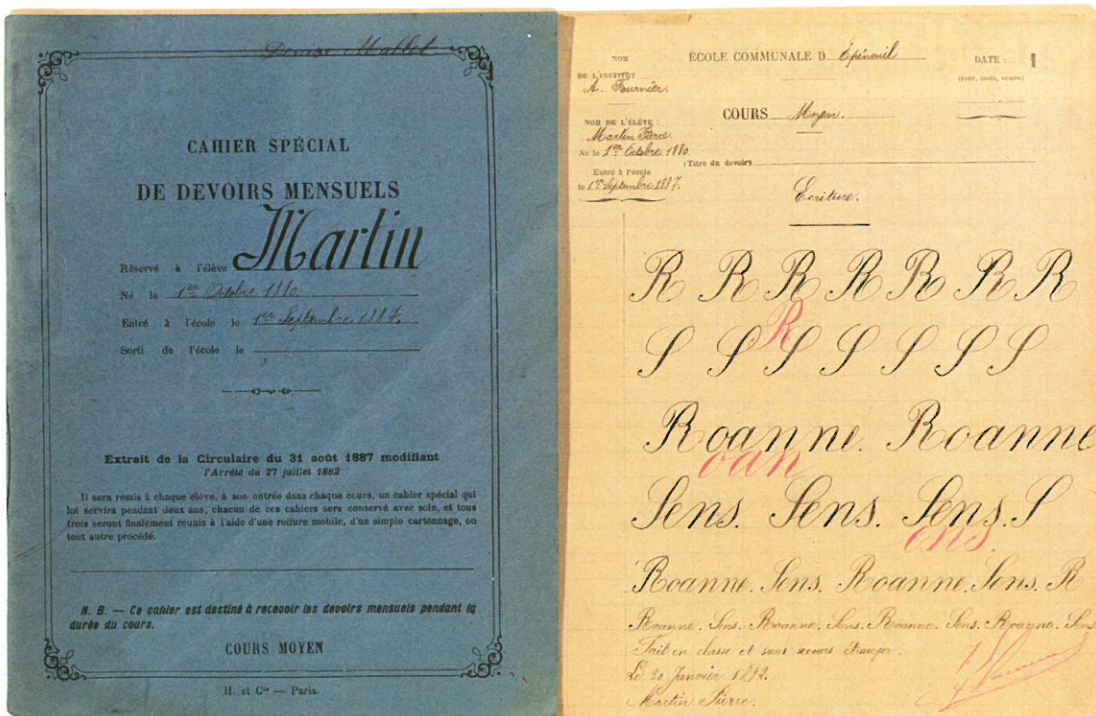 Denise Mallet
CAHIER SPÉCIAL
DE DEVOIRS MENSUELS
Réservé à l'élève Martin
Né le 1er Octobre 1880
Entré à l'école le 1er Septembre 1887.
Sorti de l'école le
Extrait de la Circulaire du 31 août 1887 modifiant
l'Arrêté du 27 juillet 1882
Il sera remis à chaque élève, à son entrée dans chaque cours, un cahier spécial qui
lui servira pendant deux ans, chacun de ces cahiers sera conservé avec soin, et tous
trois seront finalement réunis à l'aide d'une reliure mobile, d'un simple cartonnage, ou
tout autre procédé.
N. B. — Ce cahier est destiné à recevoir les devoirs mensuels pendant la
durée du cours.
COURS MOYEN
H. et Cie — Paris.
NOM
DE L'INSTITUT
A. Fournier.
NOM DE L'ÉLÈVE :
Martin Pierre.
Né le 1er Octobre 1880.
Entré à l'école
le 1er Septembre 1887.
ÉCOLE COMMUNALE D Épineuil
COURS Moyen.
(Titre du devoir)
Ecriture.
DATE : 1
(jour, mois, année)
R R R R R R R
R
S S S S S S S
Roanne. Roanne
oan
Sens. Sens. Sens. S
ens
Roanne. Sens. Roanne. Sens. R
Roanne. Sens. Roanne. Sens. Roanne. Sens. Roanne. Sens
Fait en classe et sans secours étranger.
Le 20 Janvier 1892.
Martin Pierre.